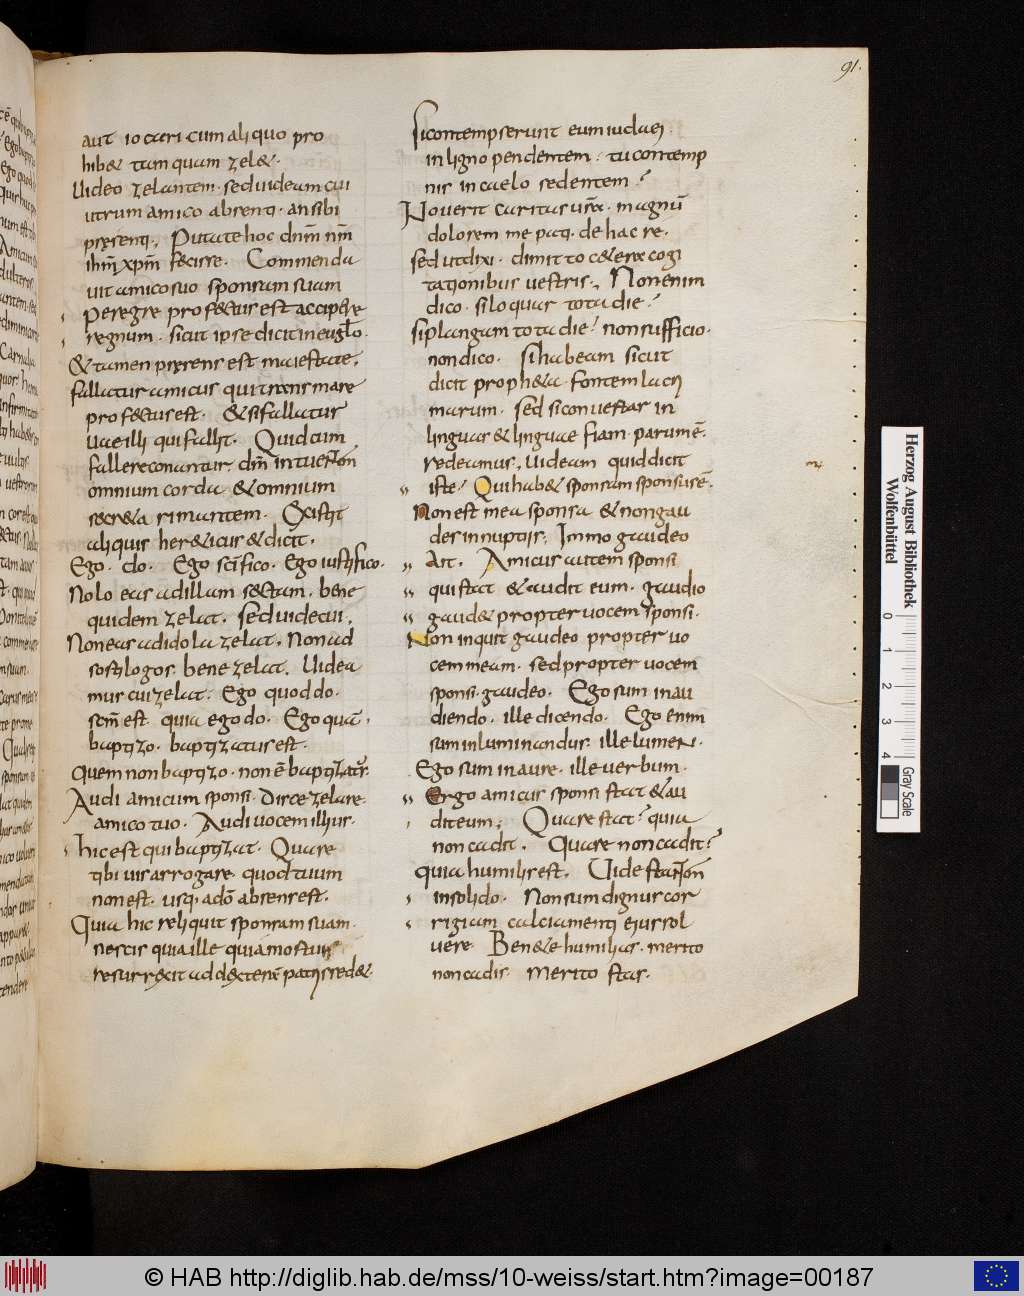 91.
aut iocari cum aliquo pro
hib& tamquam zel&.
Uideo zelantem. sed uideam cui
utrum amico absenti. an sibi
presenti. Putate hoc dnm nrm
ihm xpm fecisse. Commenda
uit amico suo sponsam suam
Peregre profectus est accipere
regnum. sicut ipse dicit in euglo.
& tamen presens est maiestate.
fallatur amicus qui trans mare
profectus est. & si fallatur
uae illi qui fallit. Quid eum
fallere conantur. dm intuentem
omnium corda & omnium
secr&a rimantem. Existit
aliquis her&icus & dicit.
Ego do. Ego scifico. Ego iustifico.
Nolo eas ad illam sectam. bene
quidem zelat. sed uide cui.
Non eas ad idola zelat. Non ad
sortilogos. bene zelat. Uidea
mus cui zelat. Ego quod do.
scm est. quia ego do. Ego que
baptizo. baptizatus est.
Quem non baptizo. non e baptizatus.
Audi amicum sponsi. Disce zelare
amico tuo. Audi uocem illius.
hic est qui baptizat. Quare
tibi uis arrogare quod tuum
non est. usq. adeo absens est.
Quia hic reliquit sponsam suam.
nescis quia ille qui a mortuis
resurrexit ad dexterā patris sed&.
Si contempserunt eum iudaei
in ligno pendentem. tu contemp
nis in caelo sedentem?
Nouerit caritas ura. magnū
dolorem me pati. de hac re.
sed ut dixi. dimitto cetera cogi
tationibus uestris. Non enim
dico. si loquar tota die?
si plangam tota die? non sufficio.
non dico. si habeam sicut
dicit proph&a fontem lacri
marum. sed si conuertar in
linguas & linguae fiam. parum ē.
redeamus. Uideam quid dicit
iste. Qui hab& sponsam sponsus ē.
Non est mea sponsa & non gau
des in nuptiis. Immo gaudeo
Ait. Amicus autem sponsi
qui stat & audit eum. gaudio
gaud& propter uocem sponsi.
Non inquit gaudeo propter uo
cem meam. sed propter uocem
sponsi gaudeo. Ego sum in au
diendo. ille dicendo. Ego enim
sum inluminandus. ille lumen.
Ego sum in aure. ille uerbum.
Ergo amicus sponsi stat & au
dit eum. Quare stat? quia
non cadit. Quare non cadit?
quia humilis est. Uide stantem
in solido. Non sum dignus cor
rigiam calciamenti eius sol
uere. Bene te humilias. merito
non cadis. Merito stas.
Herzog August Bibliothek
Wolfenbüttel
0 1 2 3 4
Gray Scale
© HAB http://diglib.hab.de/mss/10-weiss/start.htm?image=00187